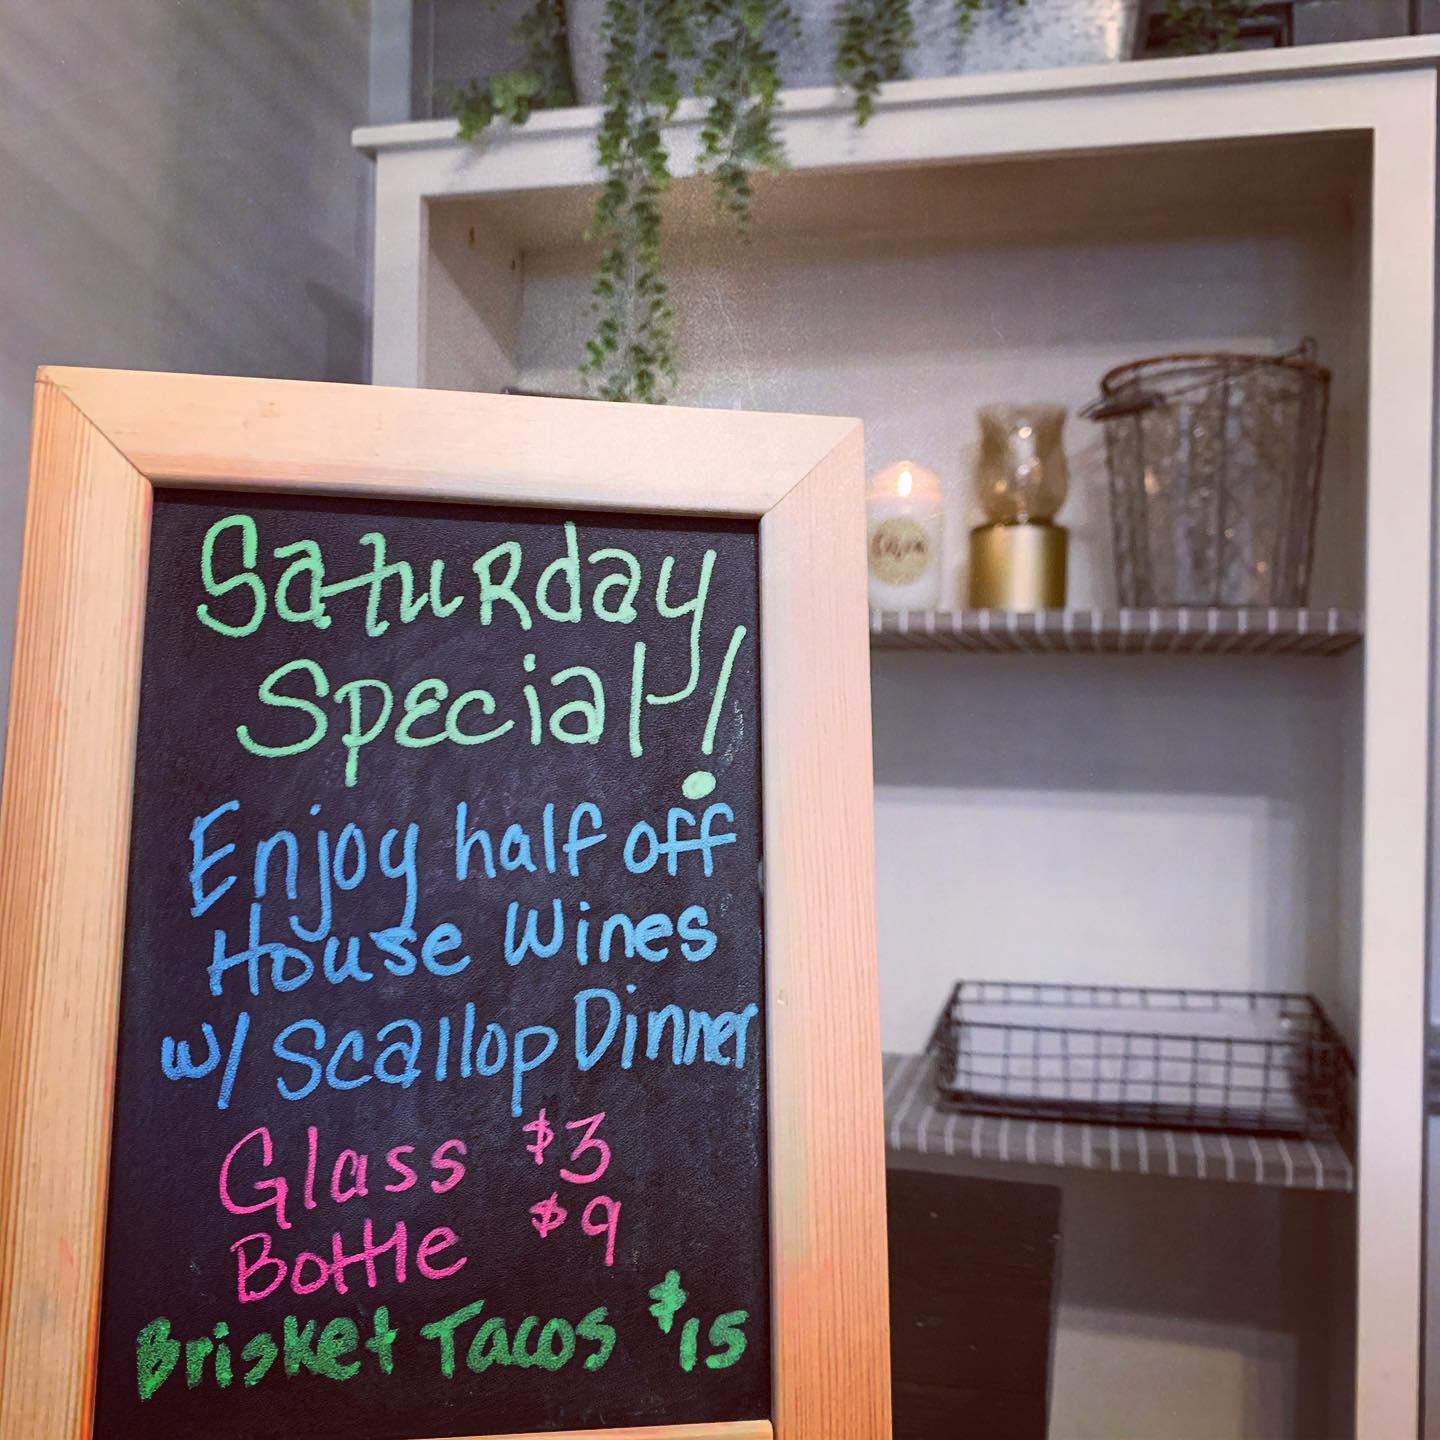 Saturday
Special!
Enjoy half off
House Wines
w/ Scallop Dinner
Glass $3
Bottle $9
Brisket Tacos $15